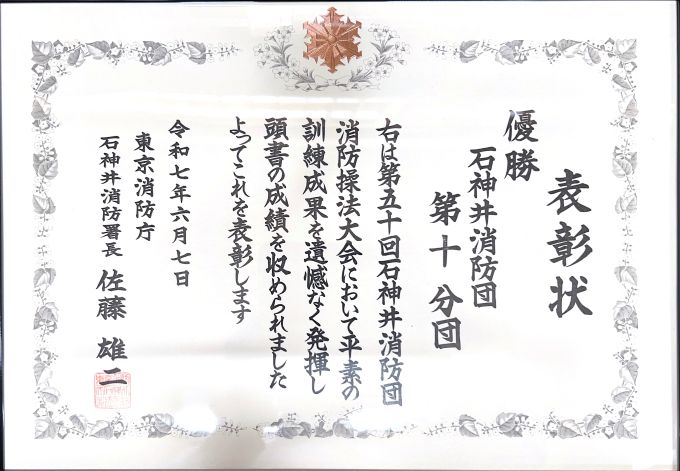 表彰状
優勝
石神井消防団
第十分団
右は第五十回石神井消防団
消防操法大会において平素の
訓練成果を遺憾なく発揮し
頭書の成績を収められました
よってこれを表彰します
令和七年六月七日
東京消防庁
石神井消防署長 佐藤雄二